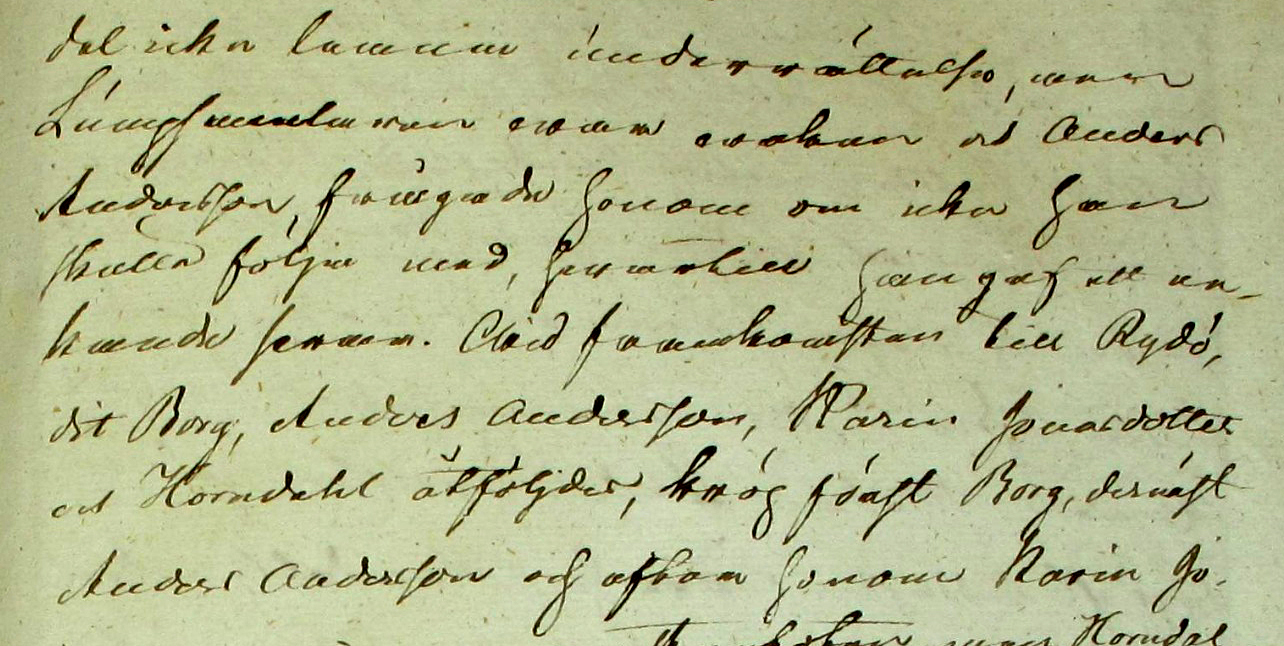 dal icke lemnar underrättelse, men
Lumpsamlaren war waken och Anders
Andersson, frågade honom om icke han
skulle följa med, hwartill han gaf ett ne-
kande swar. Wid framkomsten till Rydö,
dit Borg, Anders Andersson, Karin Jonasdotter
och Horndahl åtföljdes, steg först Borg, dernäst
Anders Andersson och efter honom Karin Jo-
Horndal